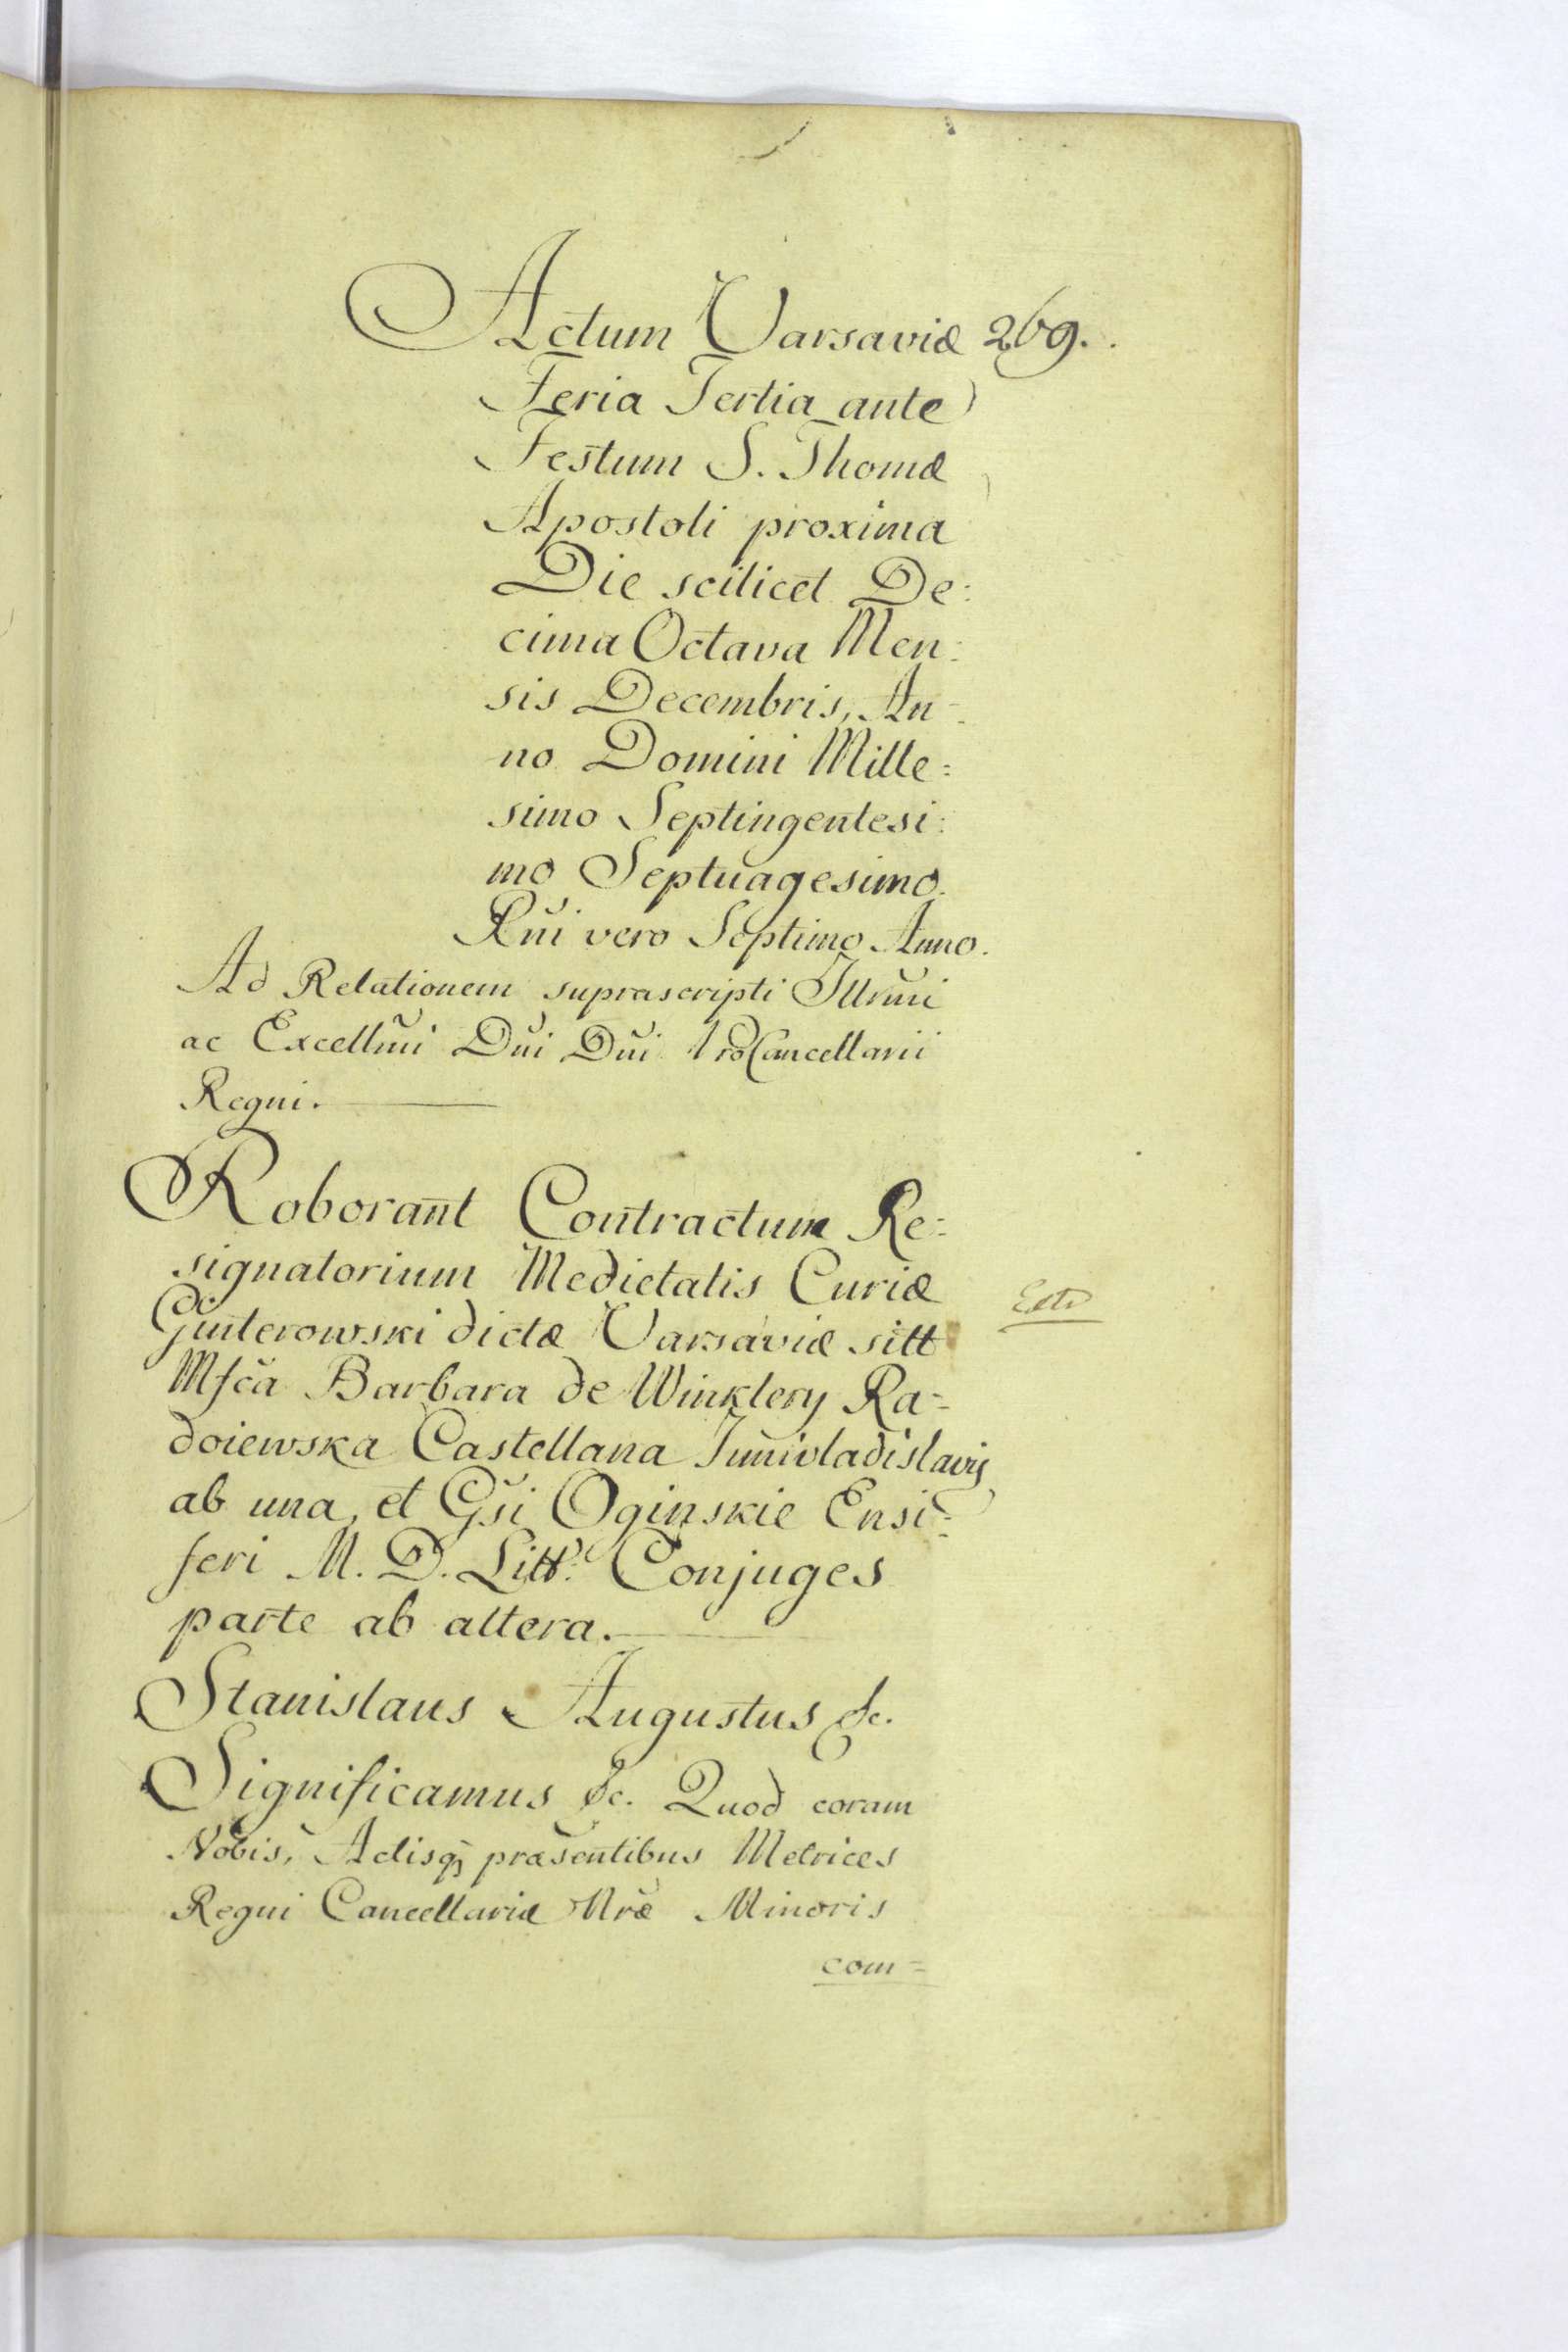 Actum Varsaviæ 269.
Feria Tertia ante
Festum S. Thomæ
Apostoli proxima
Die scilicet De:
cima Octava Men:
sis Decembris, An=
no Domini Mille=
simo Septingentesi:
mo Septuagesimo.
Rñi vero Septimo Anno.
Ad Relationem suprascripti Illrmi
ac Excellmi Dñi Dñi ProCancellarii
Regni.
Roborant Contractum Re=
signatorium Medietatis Curiæ
Ginterowski dictæ Varsaviæ sitt
Mfca Barbara de Winklery Ra=
doiewska Castellana Junivladislavis
ab una, et Gsi Oginskie Ensi=
feri M. D. Litt: Conjuges
parte ab altera.
Stanislaus Augustus &c.
Significamus &c. Quod coram
Nobis, Actisq præsentibus Metrices
Regni Cancellariæ Nræ Minoris
com=